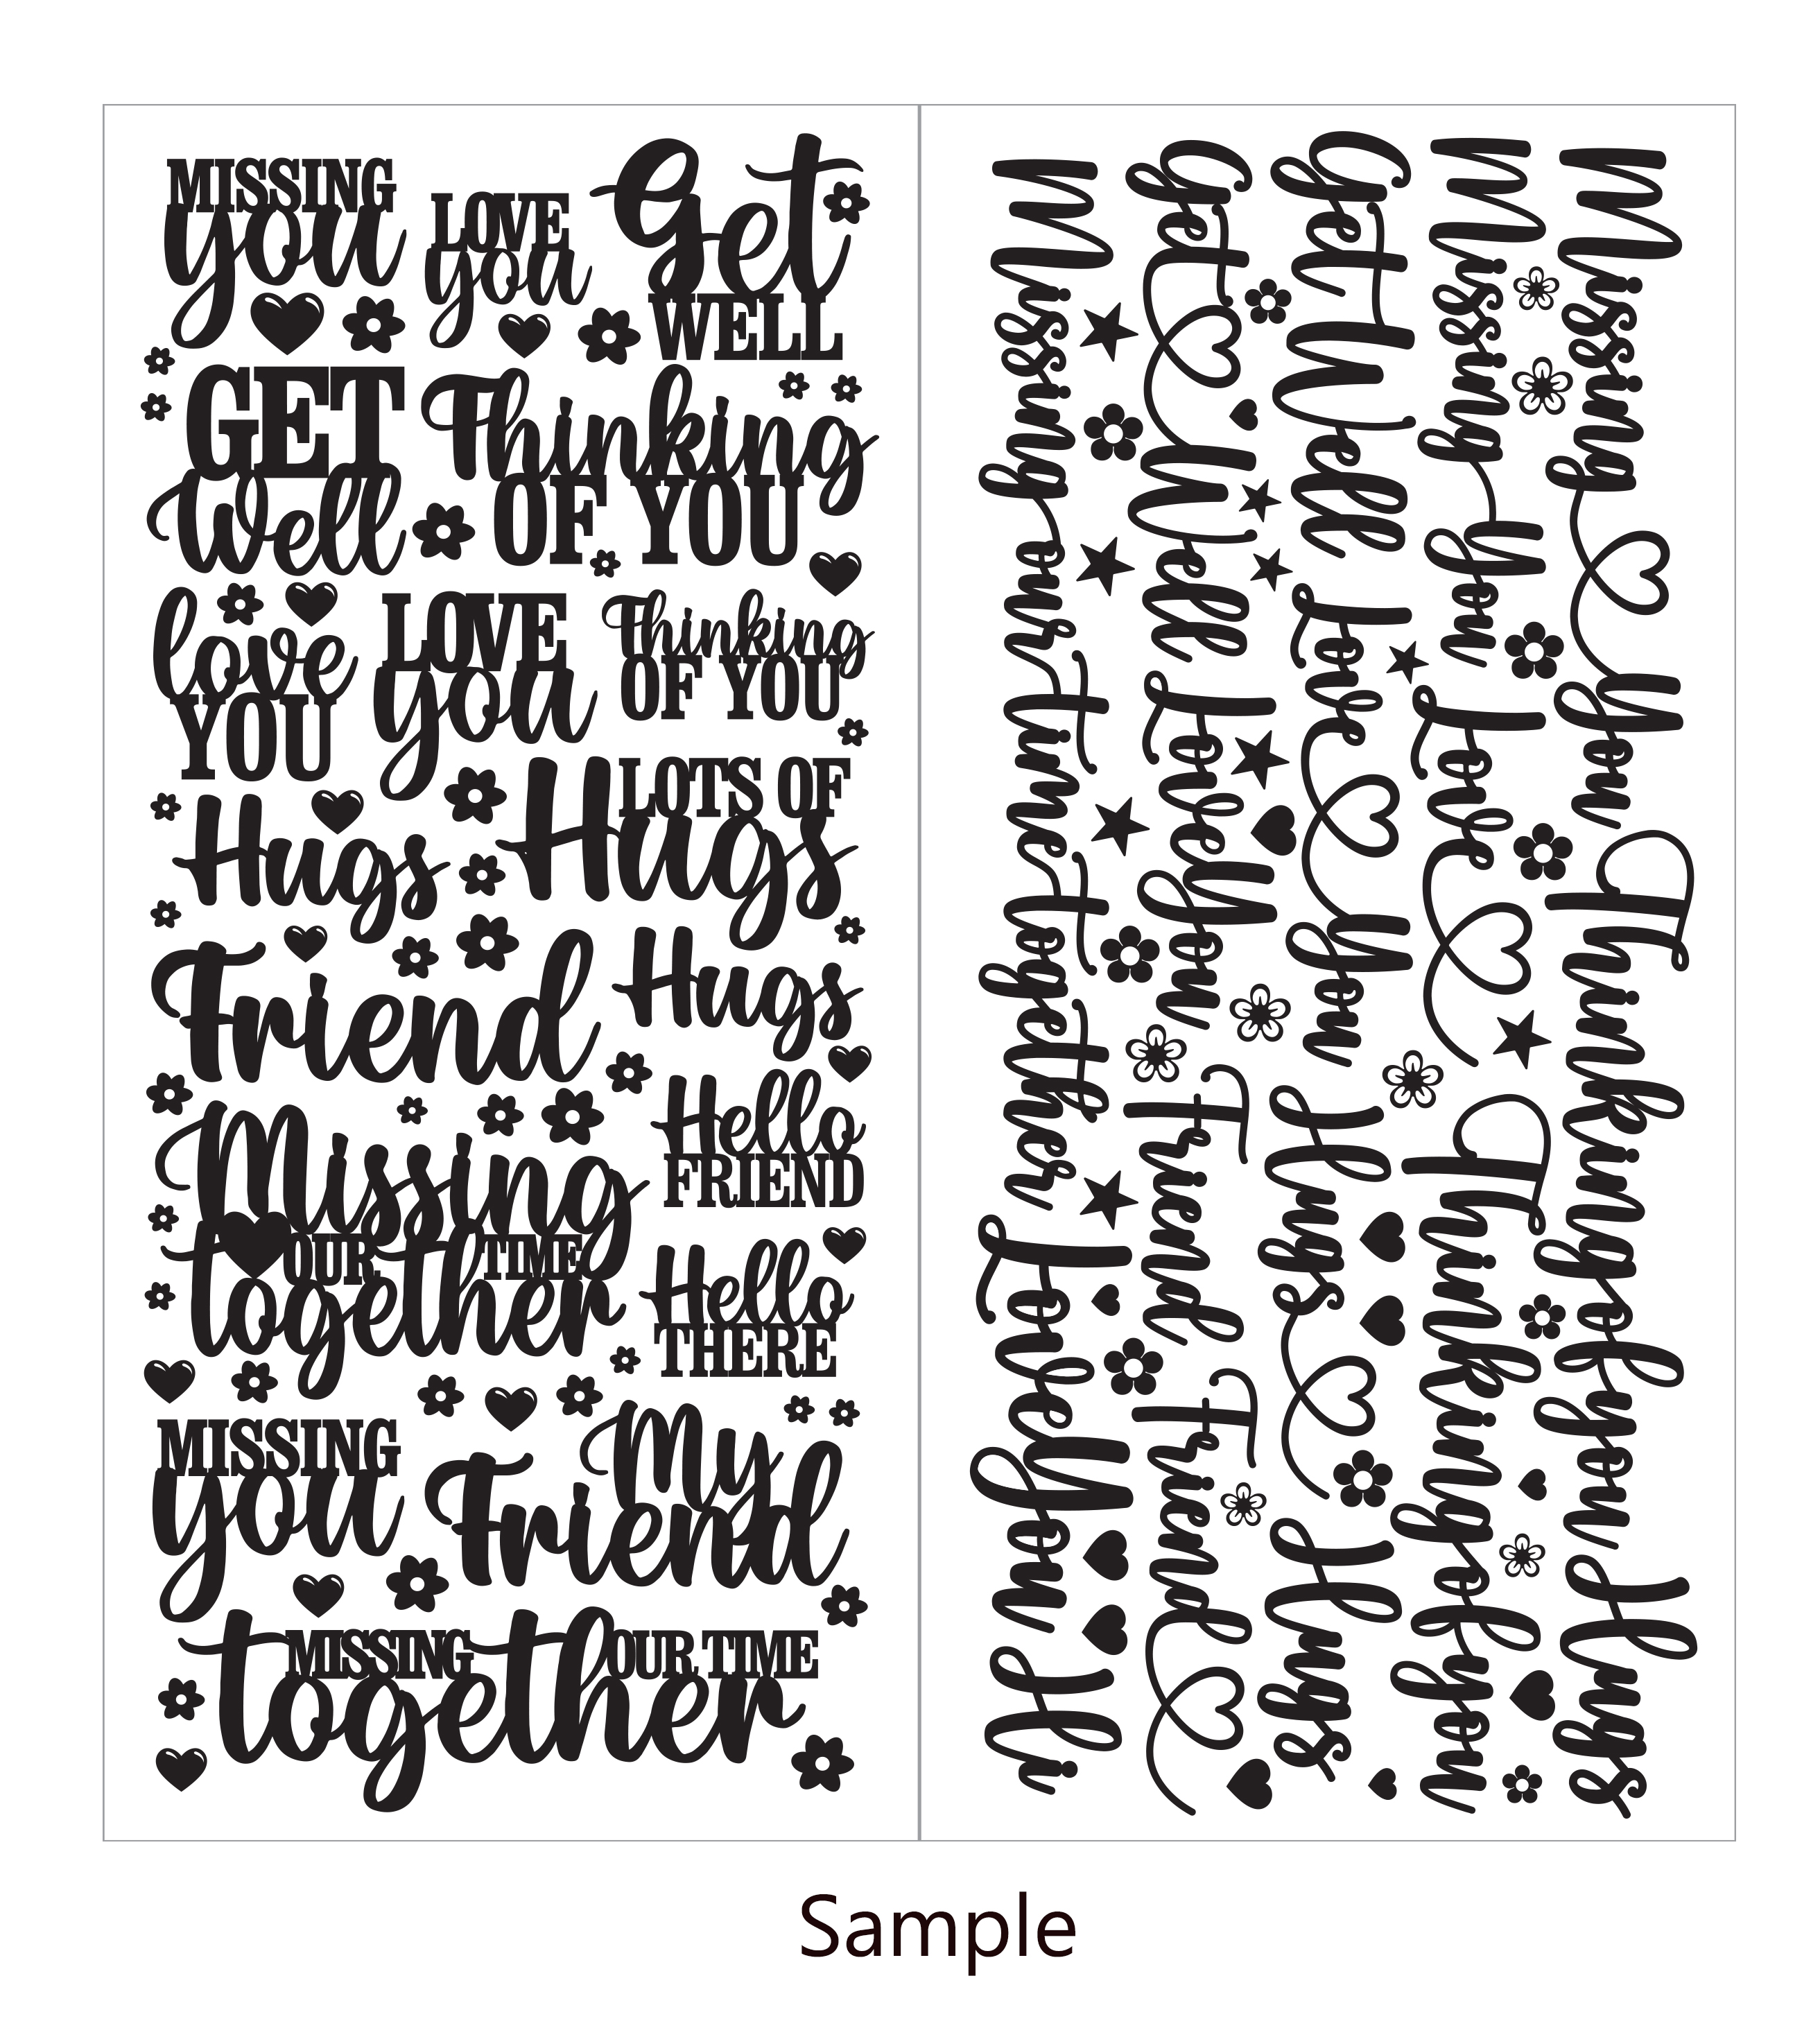 MISSING
you
LOVE
you
Get
WELL
GET
Well
Thinking
OF YOU
love
YOU
LOVE
you
Thinking
OF YOU
Hugs
LOTS OF
Hugs
Friend
Hugs
Hello
FRIEND
Missing
OUR TIME
together
Hello
THERE
MISSING
you
My
Friend
MISSING OUR TIME
together
Missing You Thinking of you Hugs
Missing You Love Thinking of you
Get Well Love You Hugs Hugs
Get Well Love You Friend Friend
Missing our time together Love You Hi
Sample